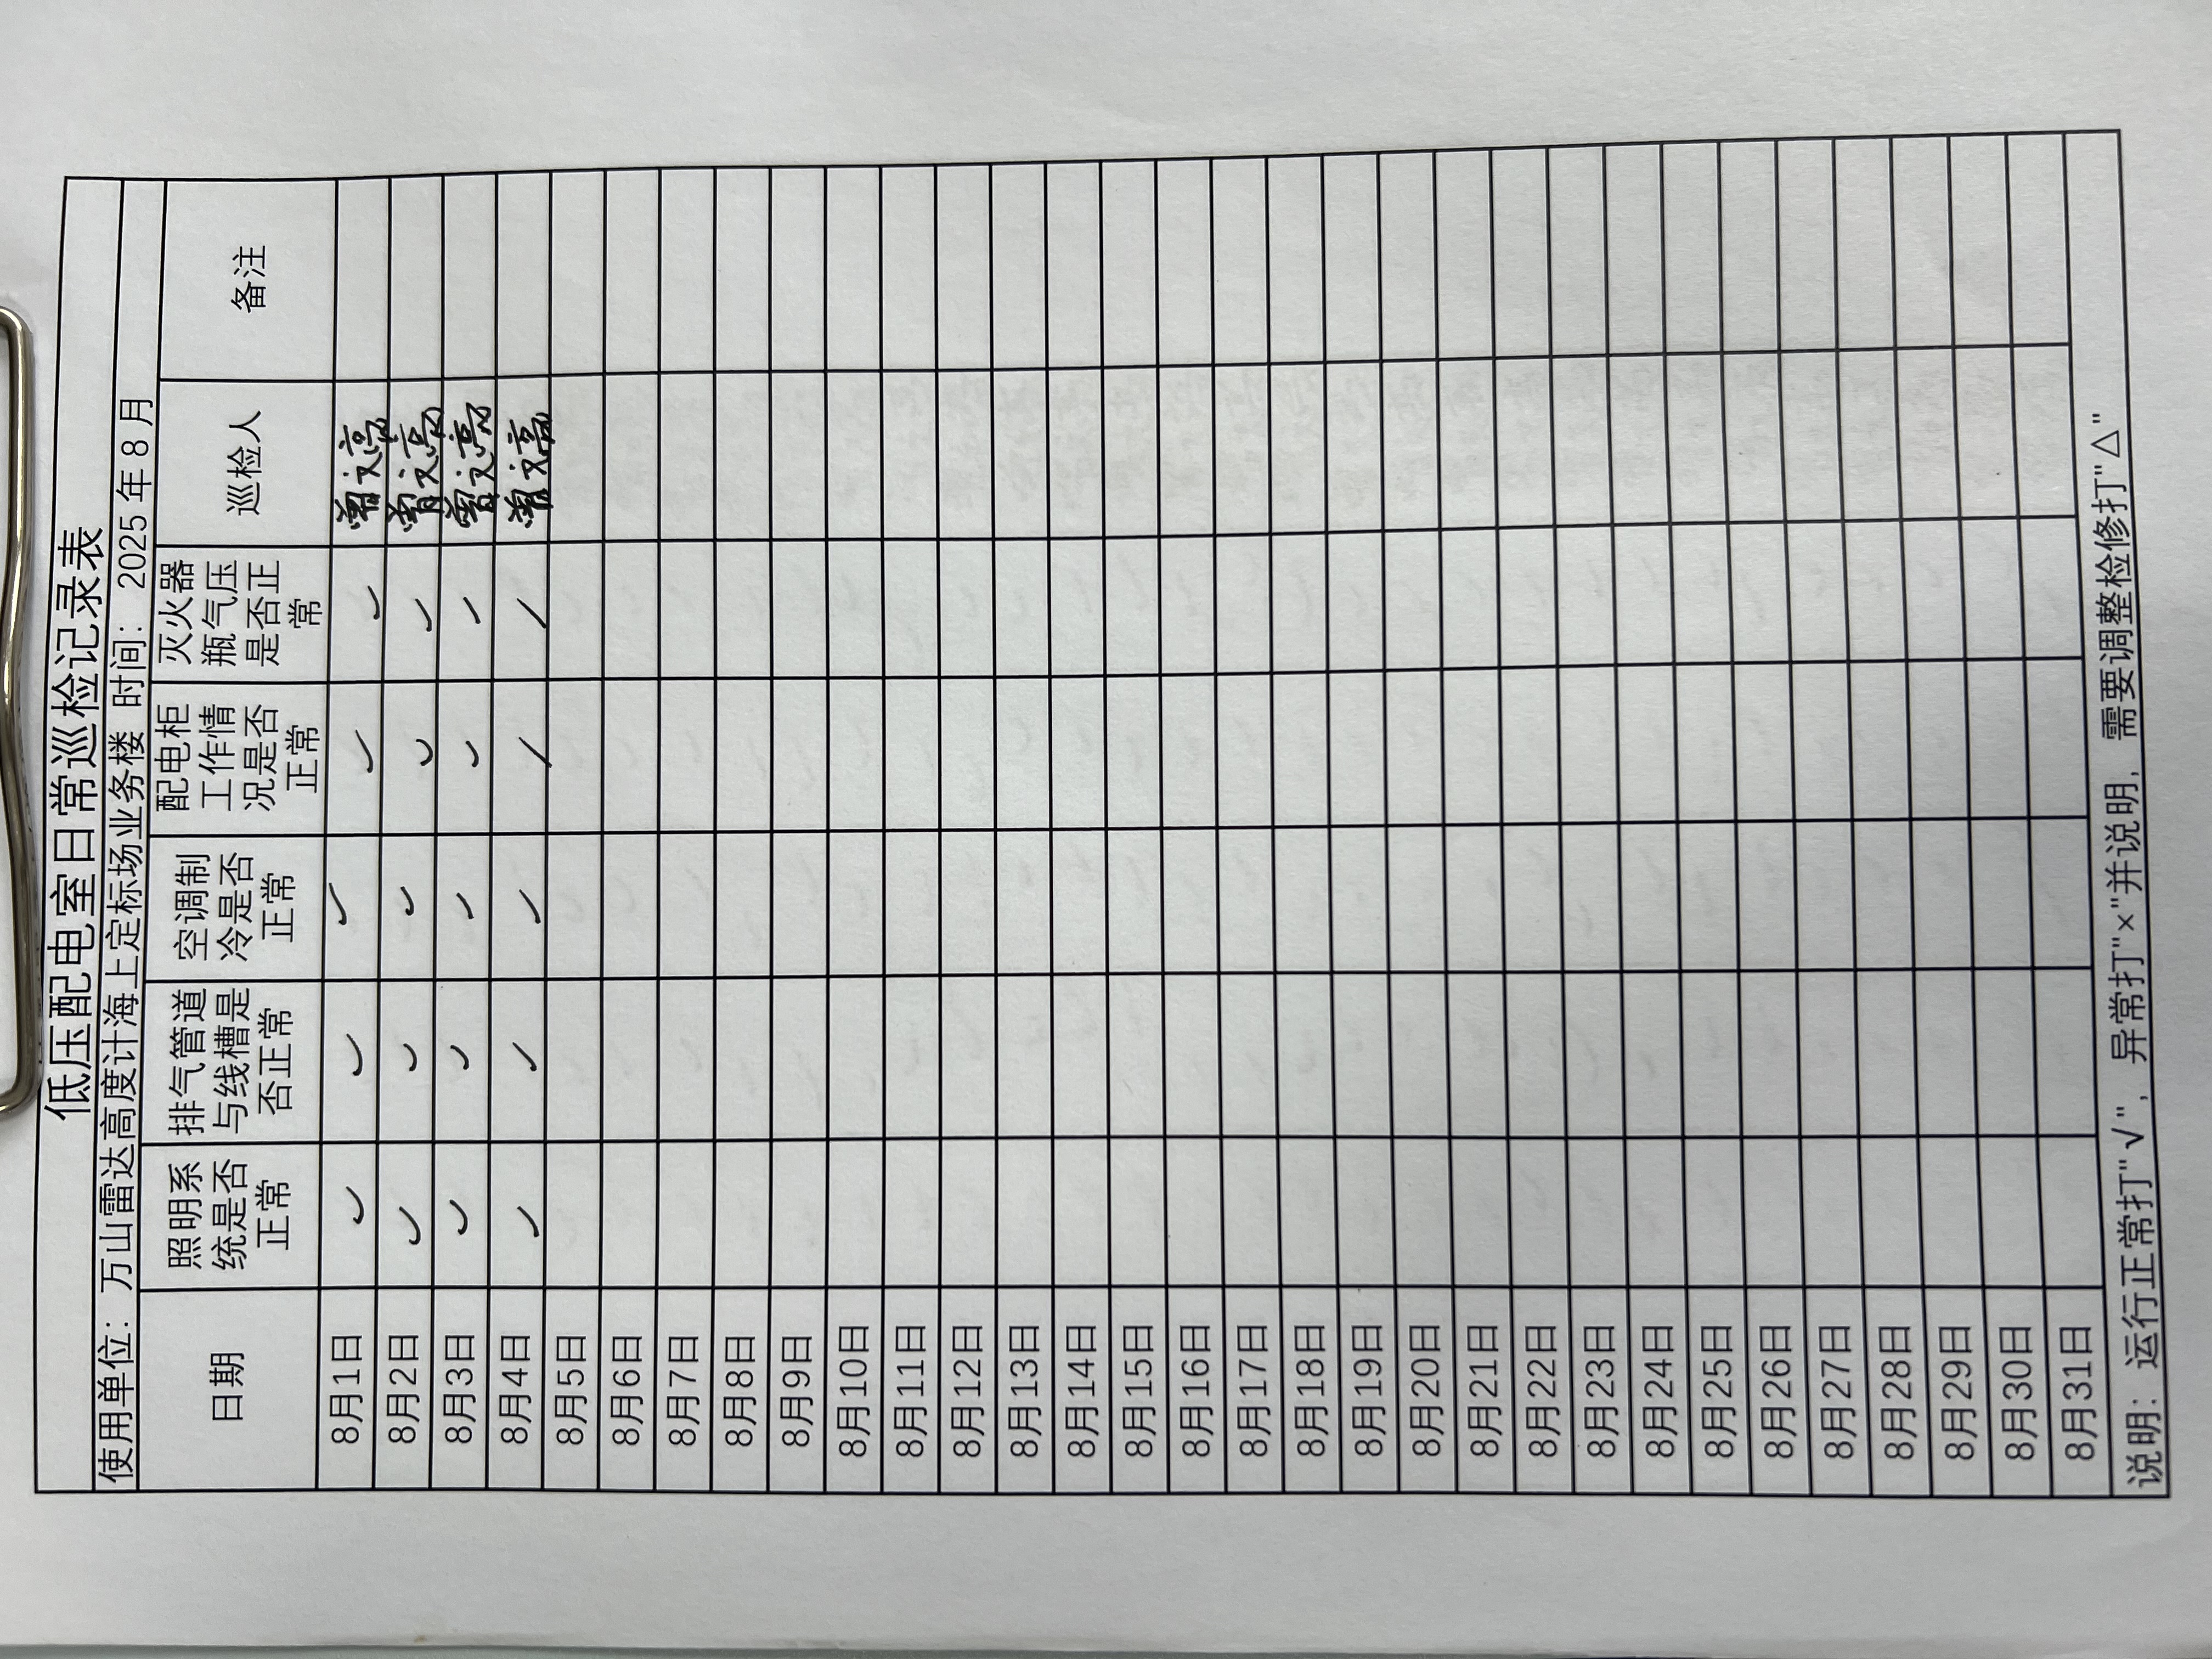 低压配电室日常巡检记录表
使用单位：万山雷达高度计海上定标场业务楼 时间：2025 年 8 月
日期 照明系统是否正常 排气管道与线槽是否正常 空调制冷是否正常 配电柜工作情况是否正常 灭火器瓶气压是否正常 巡检人 备注
8月1日 ✓ ✓ ✓ ✓ ✓ 曾文亮
8月2日 ✓ ✓ ✓ ✓ ✓ 曾文亮
8月3日 ✓ ✓ ✓ ✓ ✓ 曾文亮
8月4日 ✓ ✓ ✓ ✓ ✓ 曾文亮
8月5日
8月6日
8月7日
8月8日
8月9日
8月10日
8月11日
8月12日
8月13日
8月14日
8月15日
8月16日
8月17日
8月18日
8月19日
8月20日
8月21日
8月22日
8月23日
8月24日
8月25日
8月26日
8月27日
8月28日
8月29日
8月30日
8月31日
说明：运行正常打"√"，异常打"×"并说明，需要调整检修打"△"